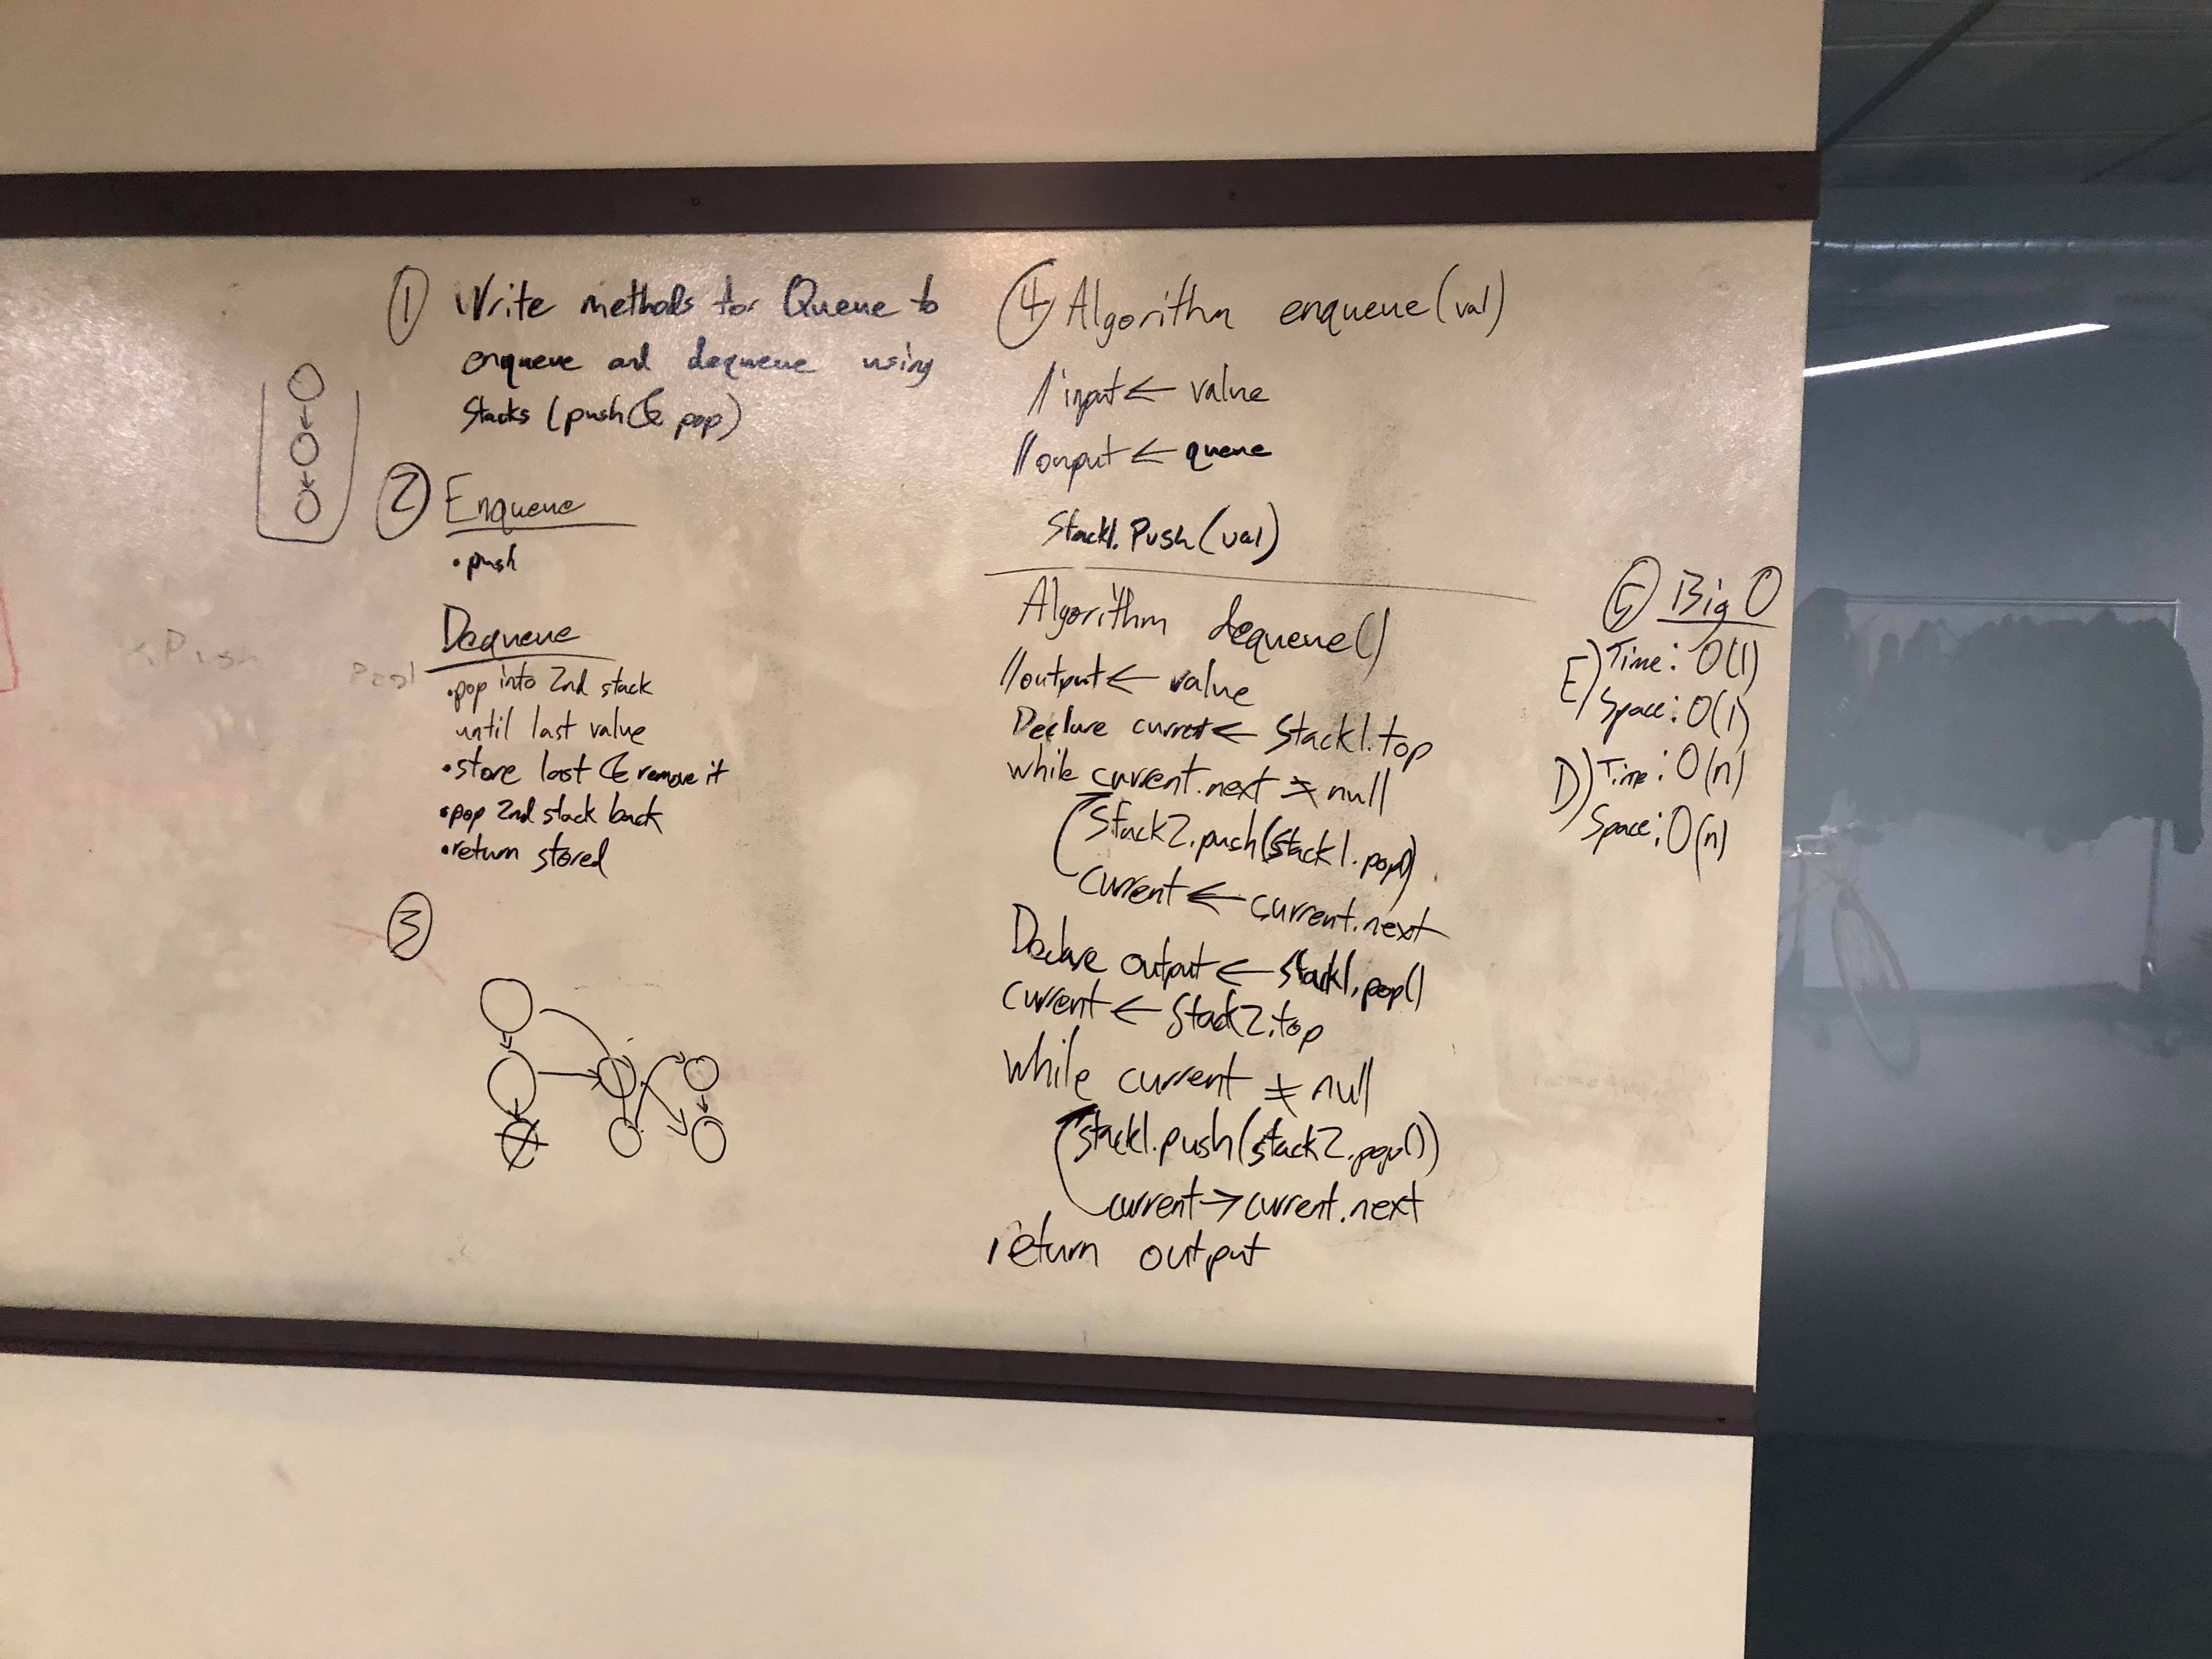 ① Write methods for Queue to
enqueue and dequeue using
Stacks (push & pop)
② Enqueue
• push
Dequeue
• pop into 2nd stack
until last value
• store last & remove it
• pop 2nd stack back
• return stored
③
④ Algorithm enqueue(val)
// input ← value
// output ← queue
Stack1.Push(val)
Algorithm dequeue()
// output ← value
Declare current ← Stack1.top
while current.next ≠ null
Stack2.push(Stack1.pop())
current ← current.next
Declare output ← stack1.pop()
current ← Stack2.top
while current ≠ null
stack1.push(stack2.pop())
current → current.next
return output
⑤ Big O
E) Time: O(1)
Space: O(1)
D) Time: O(n)
Space: O(n)
Push